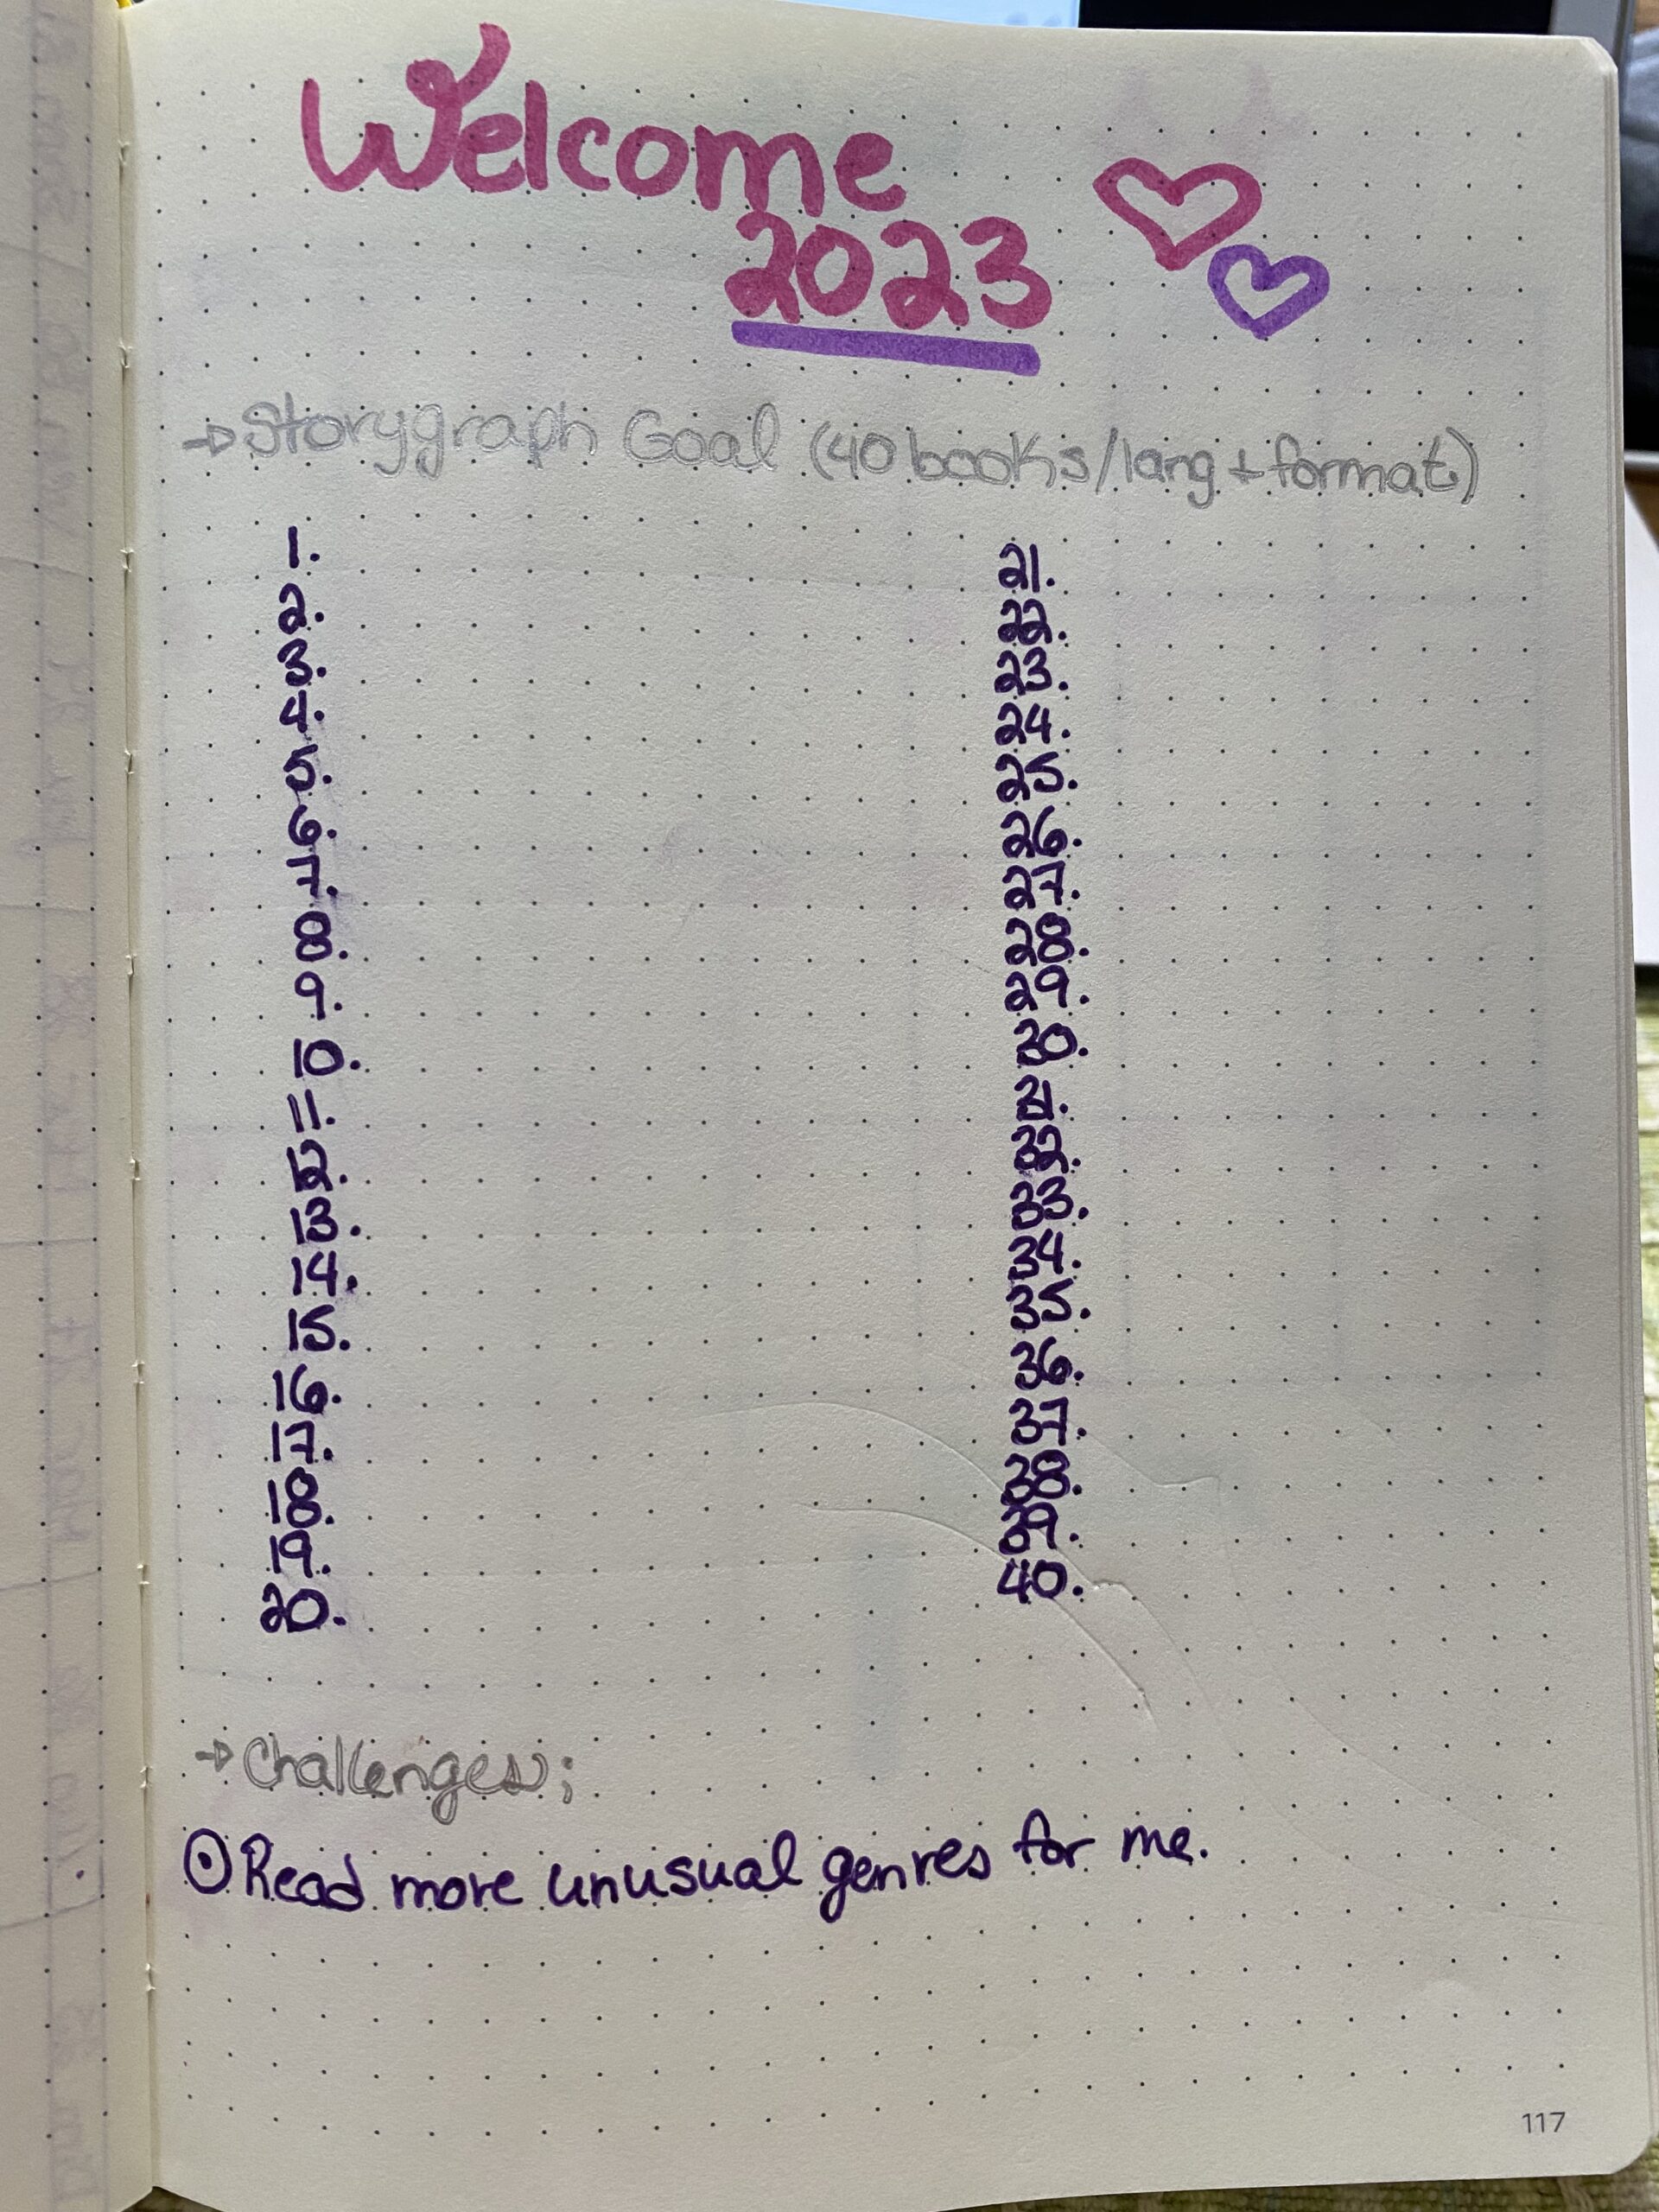 Welcome
2023
→ Storygraph Goal (40 books/lang + format.)
1.
2.
3.
4.
5.
6.
7.
8.
9.
10.
11.
12.
13.
14.
15.
16.
17.
18.
19.
20.
21.
22.
23.
24.
25.
26.
27.
28.
29.
30.
31.
32.
33.
34.
35.
36.
37.
38.
39.
40.
→ Challenges;
Read more unusual genres for me.
117